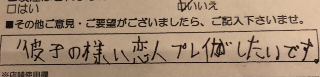 □はい　　　　　　　□いいえ
■その他ご意見・ご要望がございましたら、ご記入下さいませ。
彼子の様い恋人プレイがしたいです。
※店舗使用欄